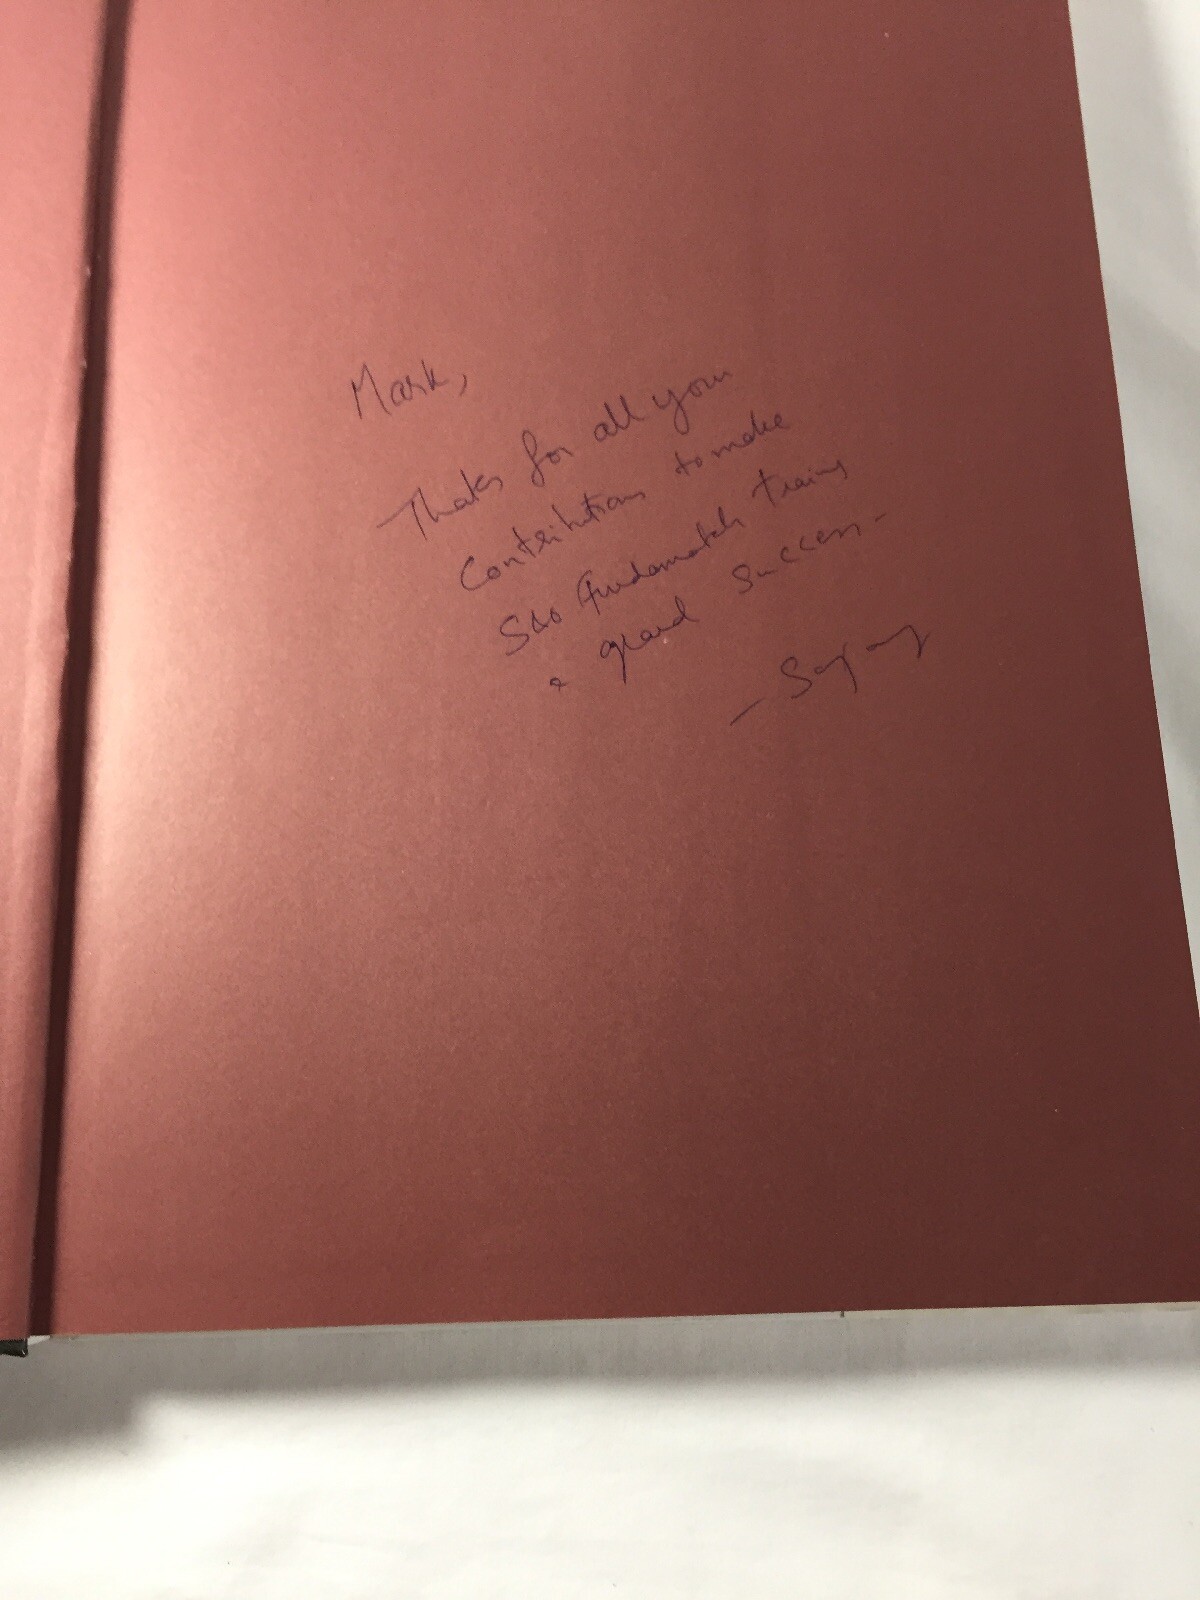 Mark,
Thaks for all your
Contributions to make
fundamentals training
a grand success.